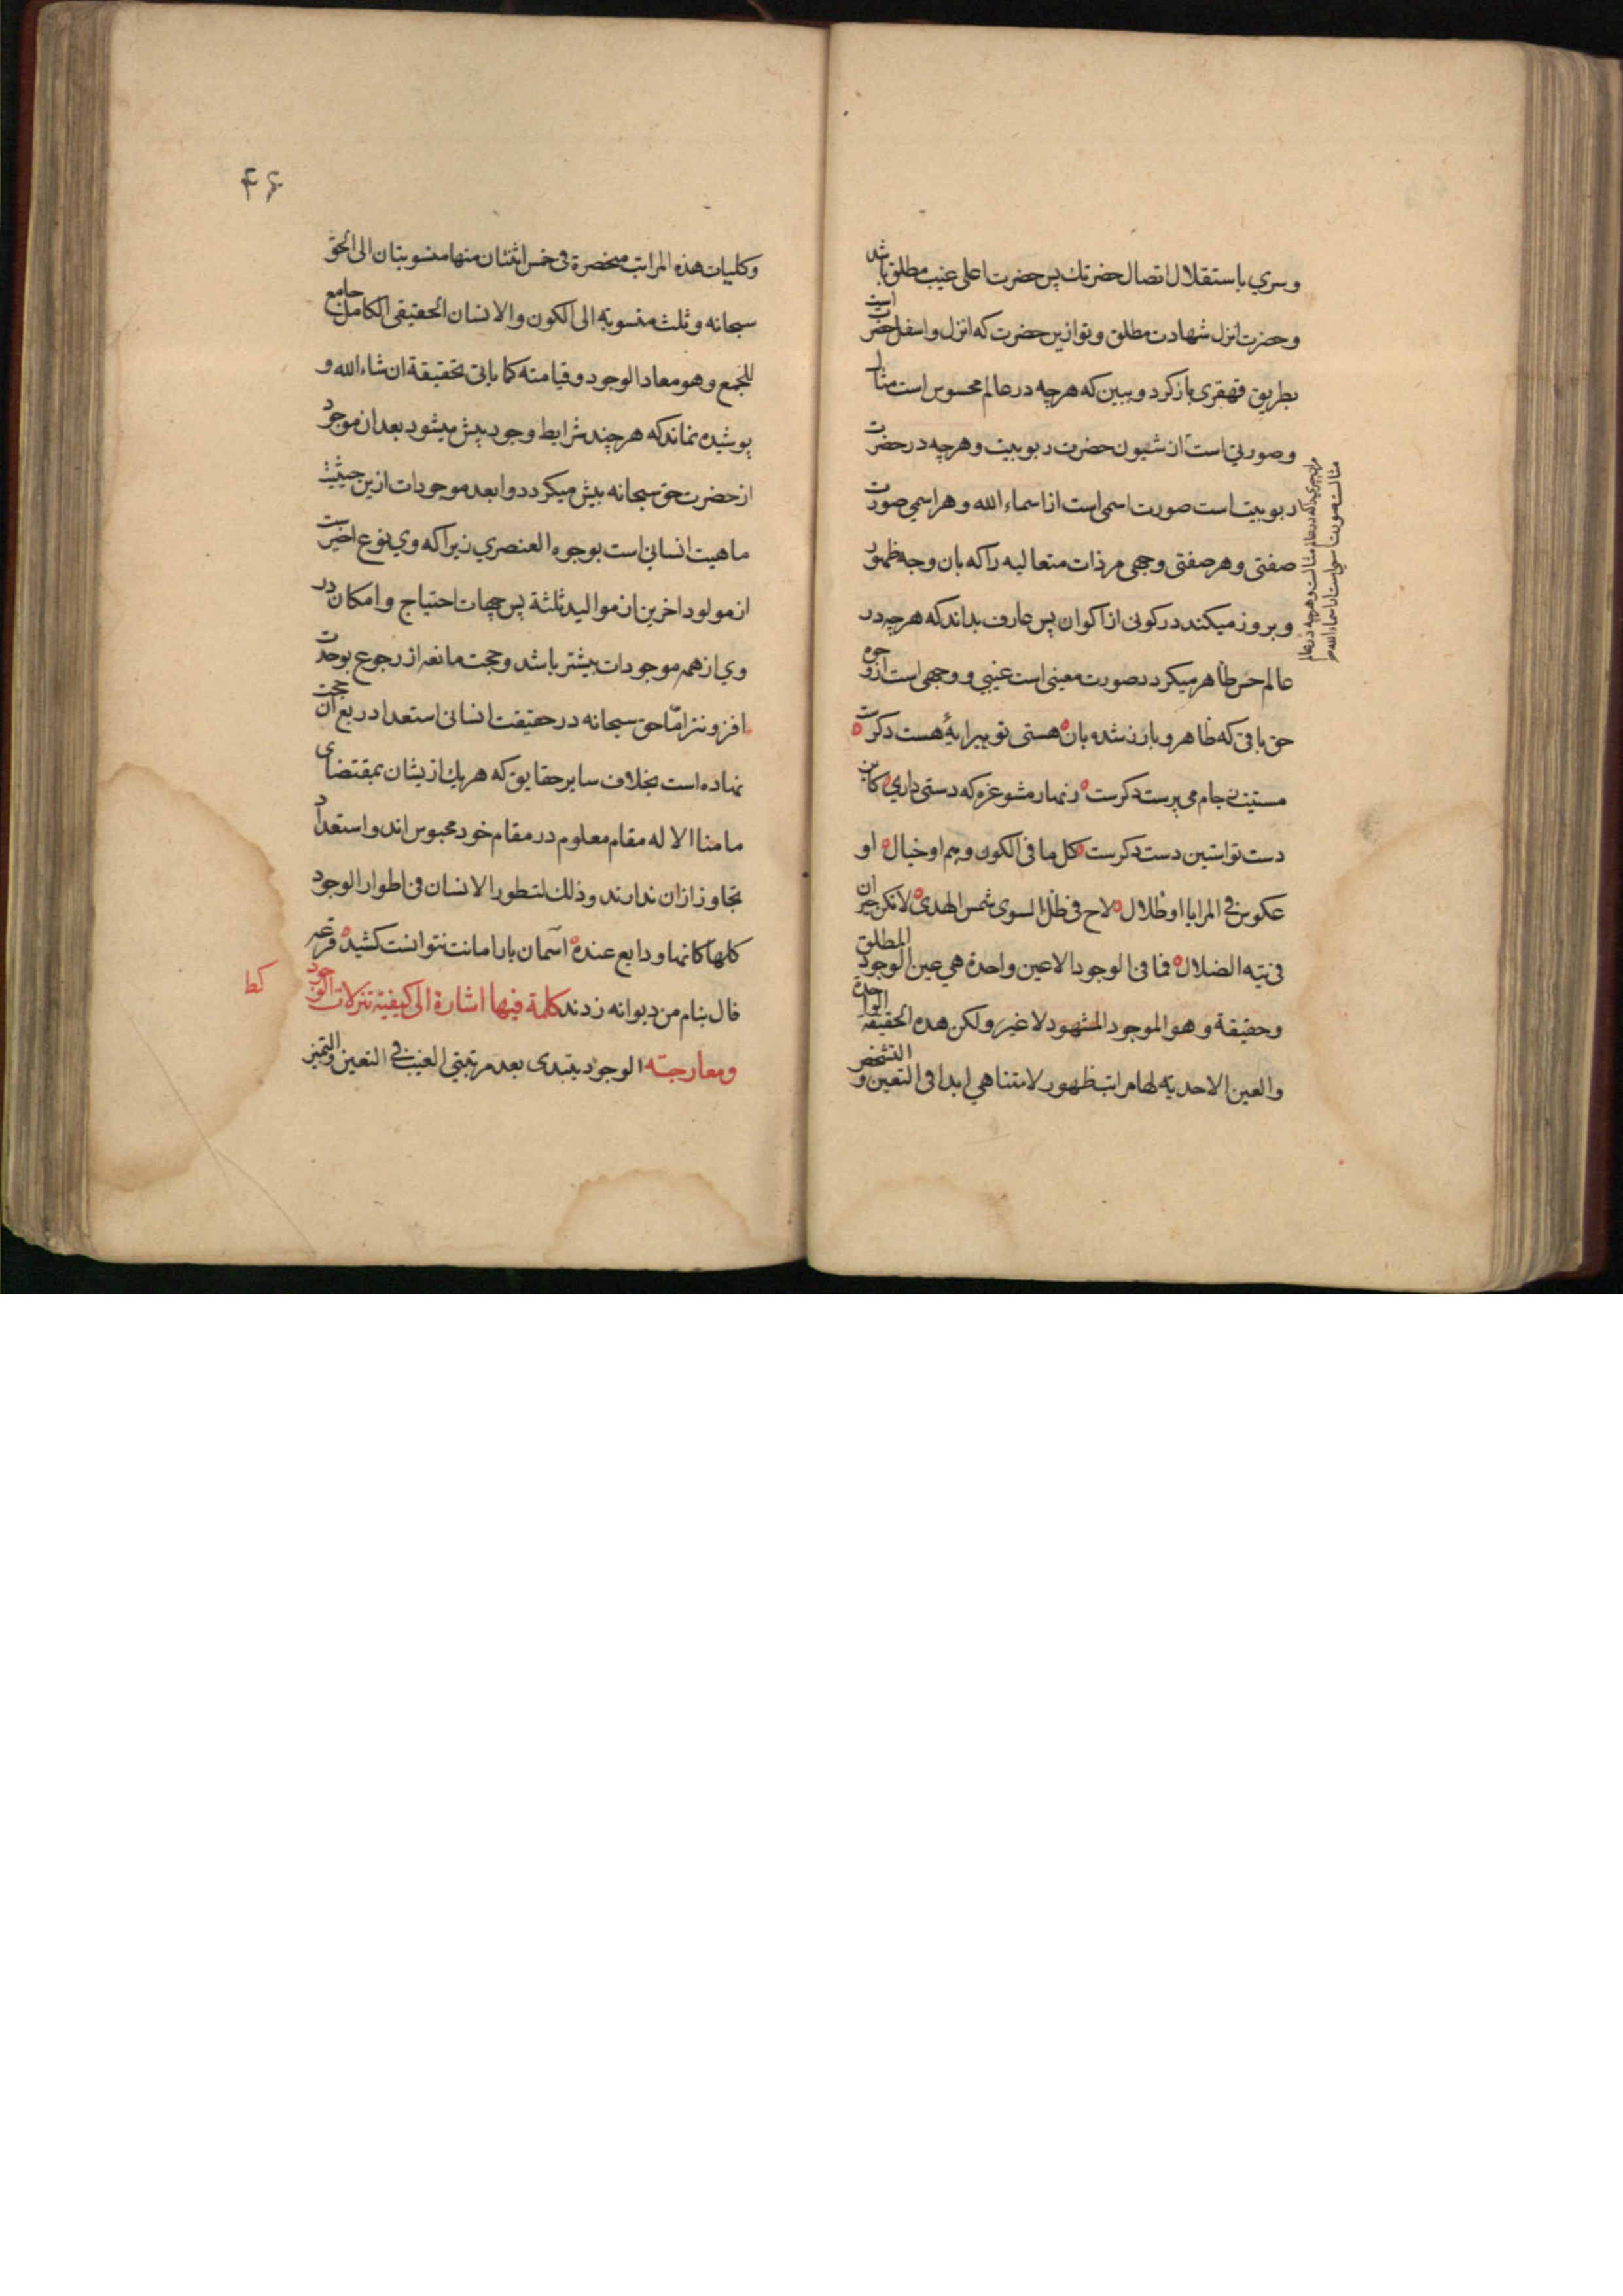 وسري باستقلال اتصال حضرتك پس حضرت اعلى غيب مطلق باشد
وحضرت انزل شهادت مطلق وتو ازين حضرت كه انزل واسفل حضرات است
بطريق قهقرى باز كرد وببين كه هرچه در عالم محسوس است مثال
وصورتي است از شيون حضرت ربوبيت وهرچه در حضرت
ربوبيت است صورت اسمى است از اسماء الله وهر اسمي صورت
صفتى وهر صفتى وجهى مر ذات متعاليه را كه بان وجه ظهور
وبروز ميكند در كونى از اكوان پس عارف بداند كه هرچه در
عالم حس ظاهر ميكردد صورت معينى است غيبي ووجهى است از وجوه
حق باقى كه ظاهر وبارز شده بان هستى تو پيرايهٔ هست دكرست
مستيت نى جام مى پرست دكرست زنهار مشو غره كه دستى داري كاين
دست تو استين دست دكرست كل ما فى الكون وهم او خيال او
عكوس فى المرايا او ظلال لاح فى ظل السوى شمس الهدى لا تكن حيران
فى تيه الضلال فما فى الوجود الا عين واحدة هي عين الوجود المطلق
وحقيقة وهو الموجود المشهود لا غير ولكن هذه الحقيقة الواحدة
والعين الاحديه لها مراتب ظهور لا متناهي ابدا فى التعين والتشخص
۴۶
وكليات هذه المراتب منحصرة فى خمس اثنتان منها منسوبتان الى الحق
سبحانه وثلث منسوبة الى الكون والانسان الحقيقى الكامل جامع
للجمع وهو معاد الوجود وقيامته كما ياتى تحقيقة ان شاء الله و
پوشيده نماند كه هرچند شرايط وجود بيش ميشود بعد ان موجود
از حضرت حق سبحانه بيش ميكردد وابعد موجودات ازين حيثيت
ماهيت انسانى است بوجوده العنصري زيرا كه وي نوع اخيرست
از مولود اخرين از مواليد ثلثة پس جهات احتياج وامكان در
وي از همه موجودات بيشتر باشد وحجت مانعه از رجوع بوحدت
افزونتر امّا حق سبحانه در حقيقت انسانى استعداد رفع ان حجت
نهاده است بخلاف ساير حقايق كه هريك ازيشان بمقتضاى
ما منا الا له مقام معلوم در مقام خود محبوس اند واستعداد
تجاوز ازان ندارند وذلك لتطور الانسان فى اطوار الوجود
كلها كانها ودايع عنده اسمان بار امانت نتوانست كشيد قرعه
فال بنام من ديوانه زدند كلمة فيها اشارة الى كيفية تنزلات الوجود
كط
ومعارجته الوجود يبتدى بعد مرتبتي الغيب فى التعين والتميز